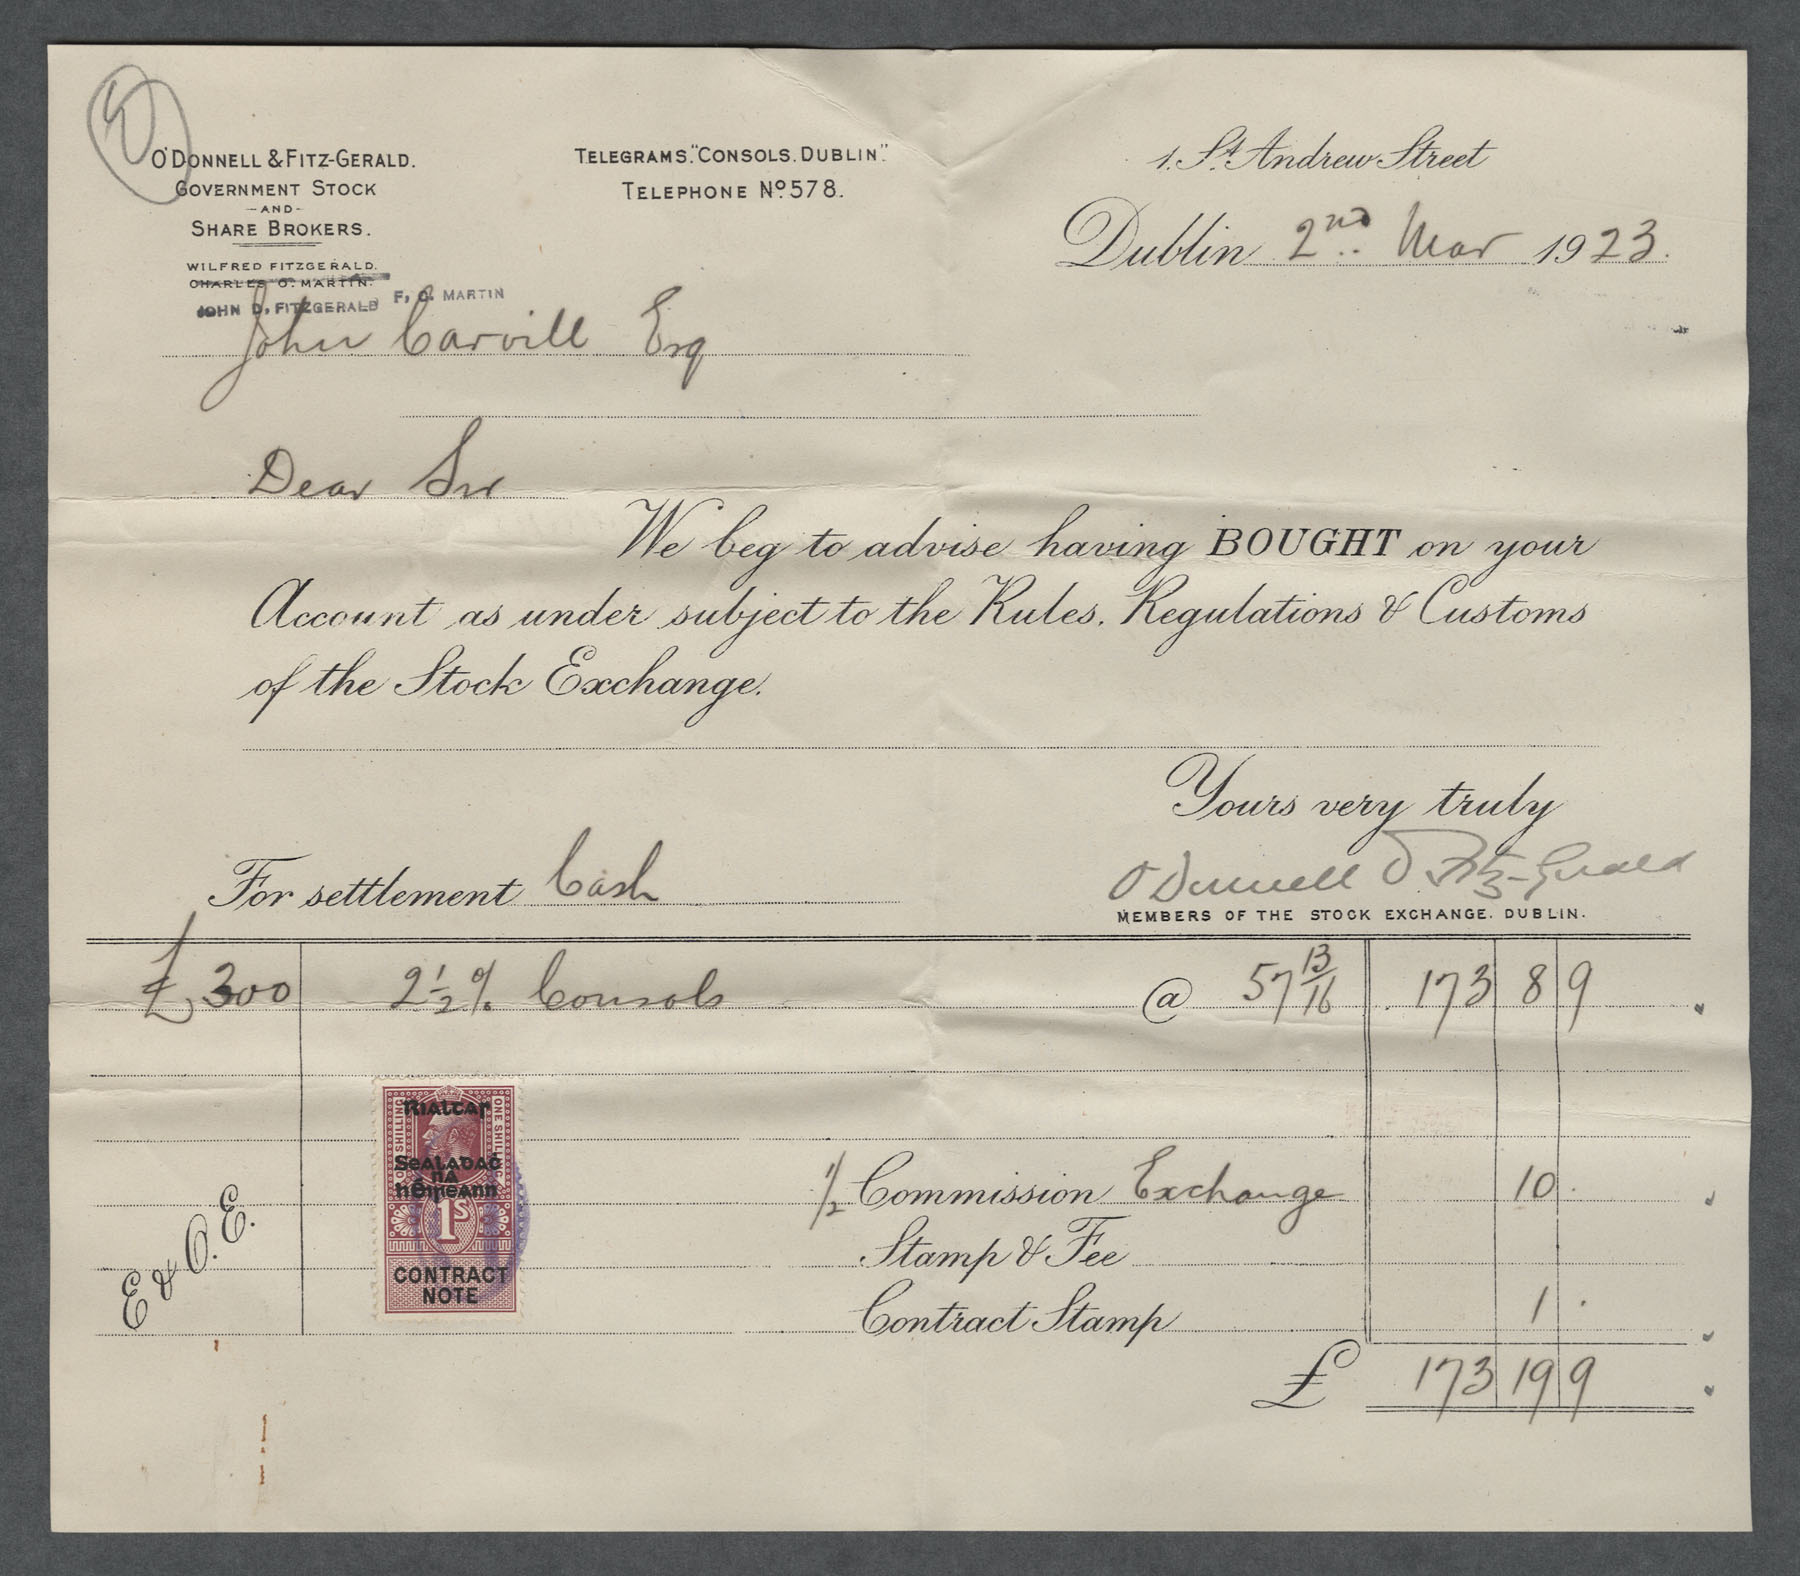 O'DONNELL & FITZ-GERALD.
GOVERNMENT STOCK
-AND-
SHARE BROKERS.
WILFRED FITZGERALD.
CHARLES O. MARTIN.
JOHN D. FITZGERALD F. O. MARTIN
TELEGRAMS. "CONSOLS. DUBLIN".
TELEPHONE No. 578.
1. St. Andrew Street
Dublin 2nd Mar 1923.
John Carvill Esq
Dear Sir
We beg to advise having BOUGHT on your
Account as under subject to the Rules. Regulations & Customs
of the Stock Exchange.
Yours very truly
O'Donnell & Fitz-Gerald
MEMBERS OF THE STOCK EXCHANGE. DUBLIN.
For settlement Cash
£300 2½% Consols @ 57 13/16 173 8 9
1/2 Commission Exchange 10 .
Stamp & Fee
Contract Stamp 1 .
£ 173 19 9
E & O. E.
ONE SHILLING
ONE SHILLING
Rialtar
Sealadaċ
na
hÉireann
1S
CONTRACT
NOTE